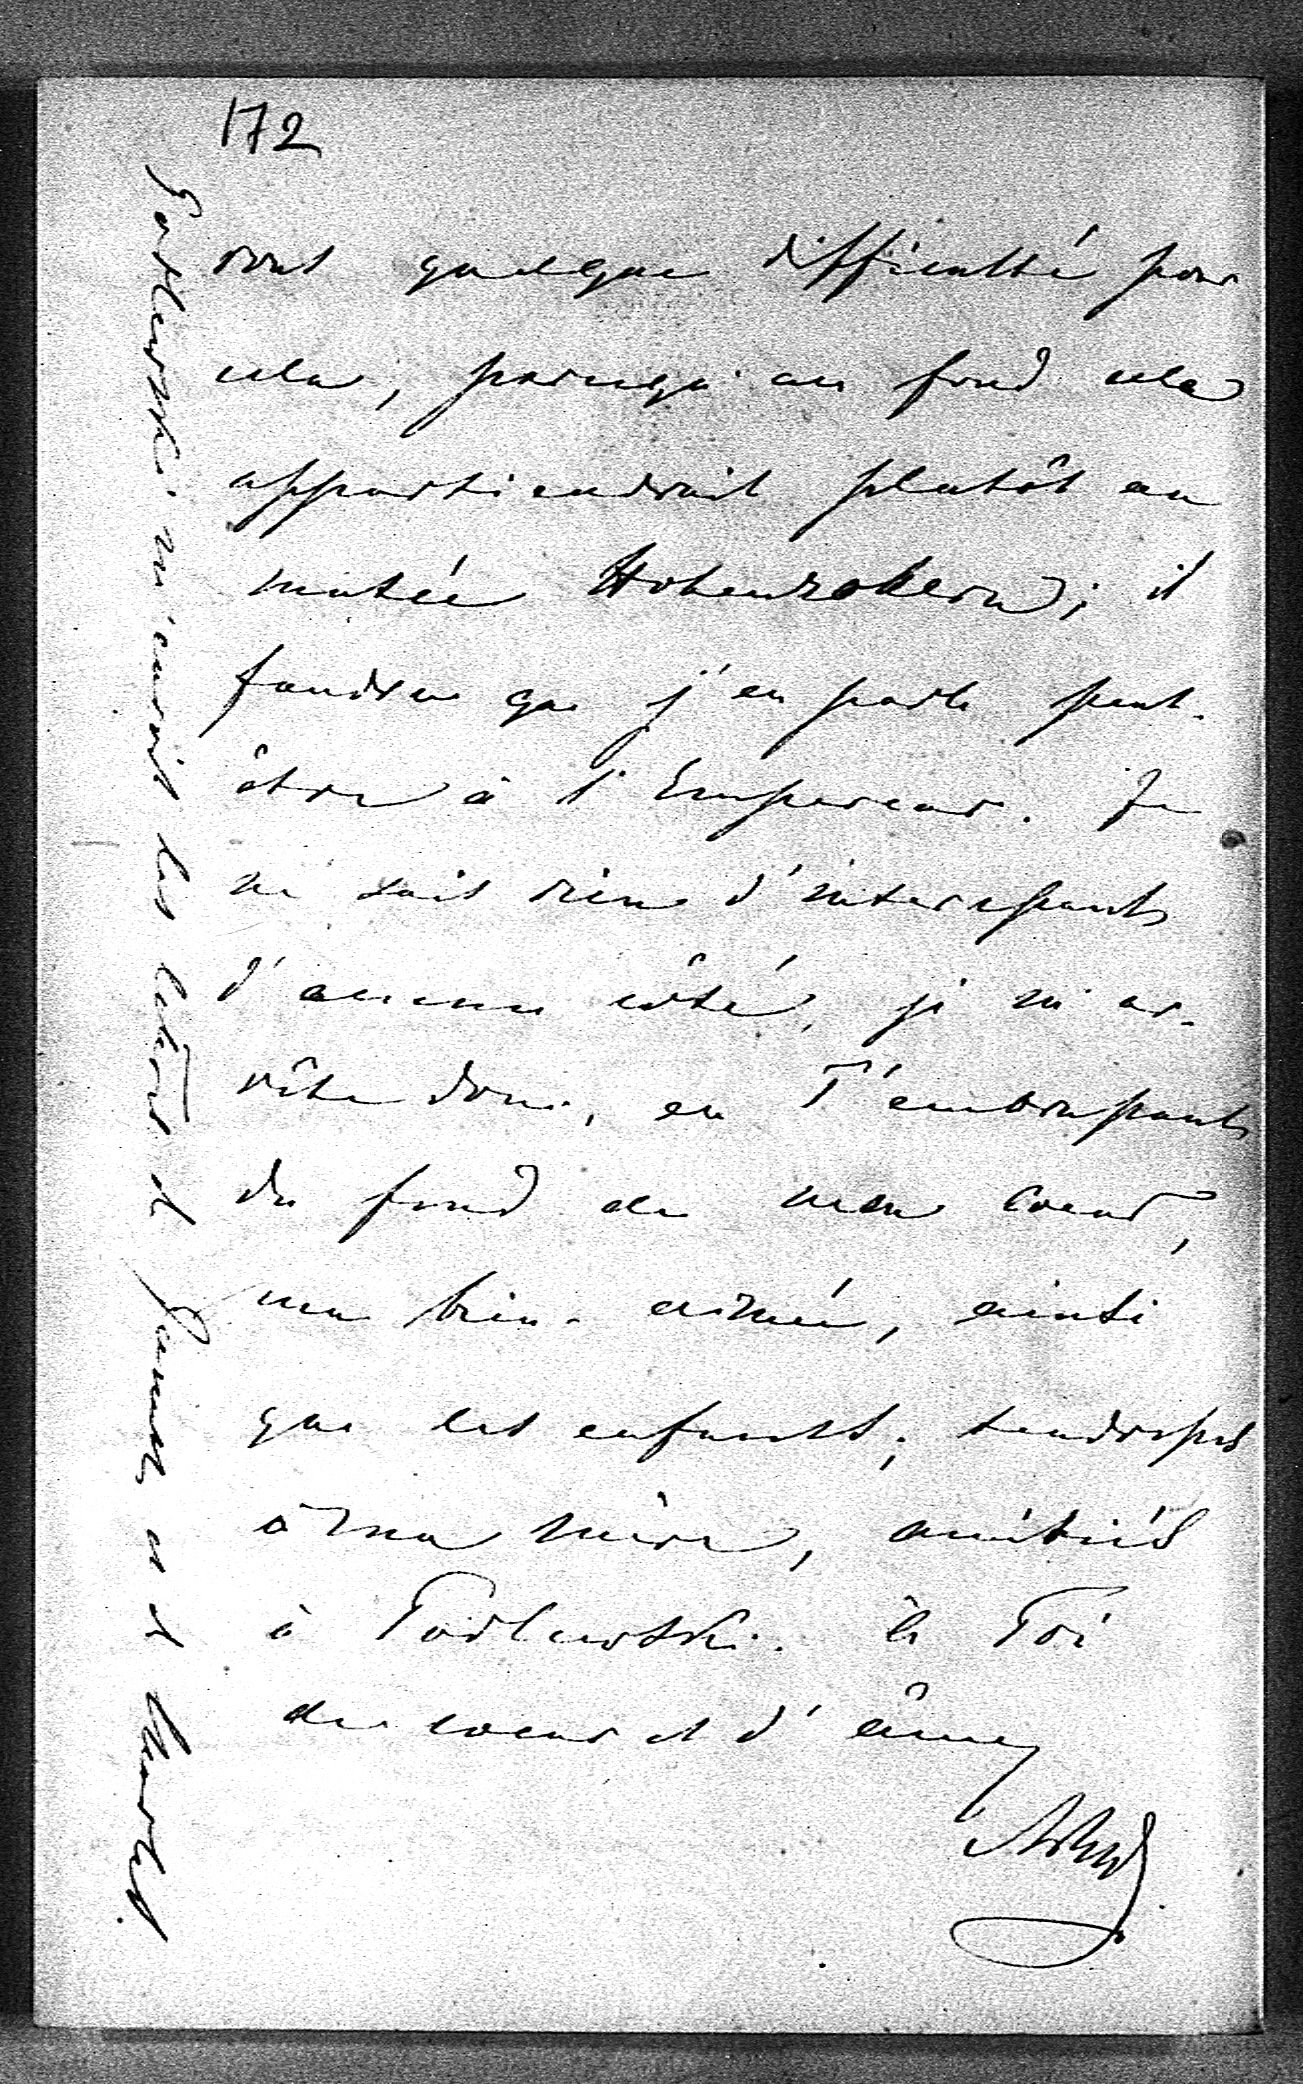 172
ront quelque difficulté pour
cela, parcequ'au fond cela
appartiendrait plutôt au
musée Hohenzollern; il
faudra que j'en parle peut-
être à l'Empereur. Je
ne sais rien d'interessant
d'aucun côté, je m'ar-
rête donc, en T'embrassant
du fond de mon coeur,
ma bien-aimée, ainsi
que les enfants; tendresses
à ma mère, amitiés
à Godlewski. à Toi
de coeur et d'âme
Godlewski m'envoit des lettres de et de